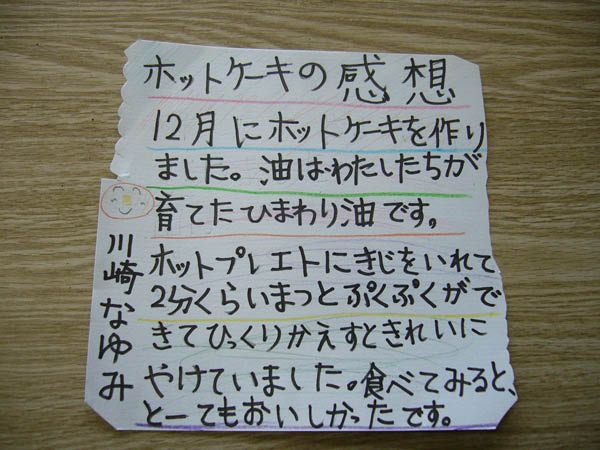 ホットケーキの感想
12月にホットケーキを作り
ました。油はわたしたちが
育てたひまわり油です。
ホットプレエトにきじをいれて
2分くらいまつとぷくぷくがで
きてひっくりかえすときれいに
やけていました。食べてみると、
とーてもおいしかったです。
川崎なゆみ